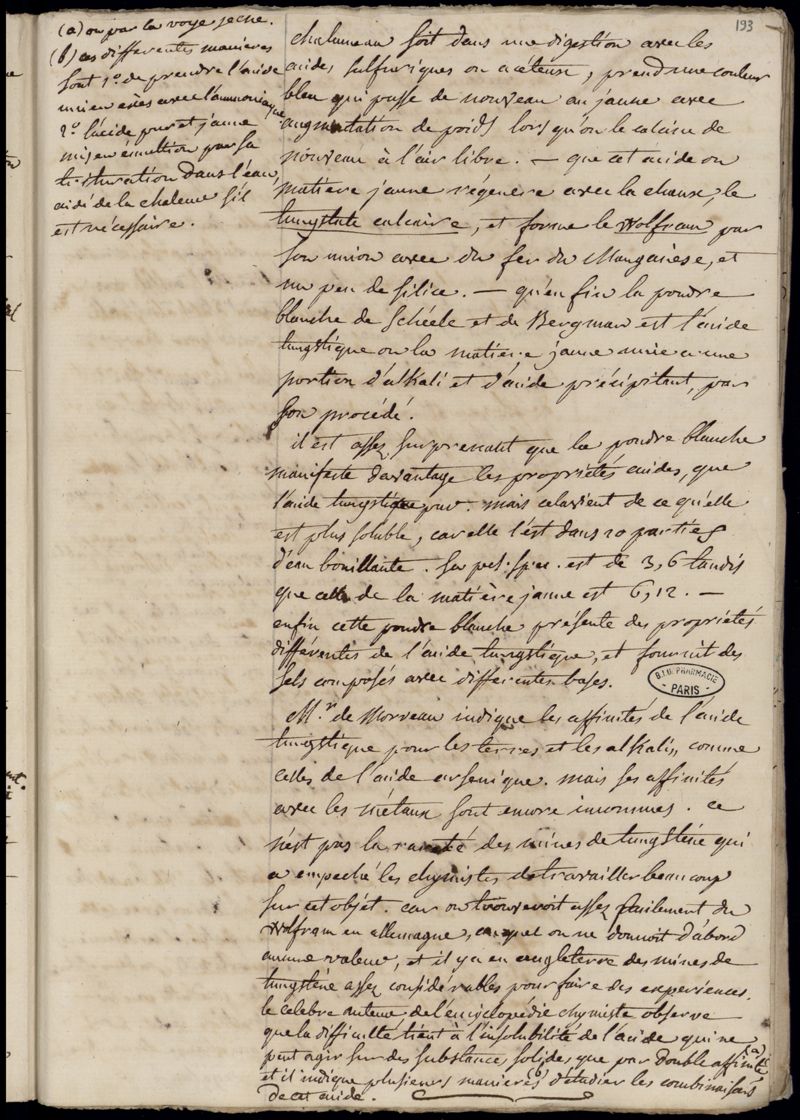 193
(a) ou par la voye seche.
(b) ces différentes manières
sont 1º de prendre l'acide
mis en excès avec l'ammoniaque
2º l'acide pur et jaune
mis en emultion par sa
trituration dans l'eau,
aidé de la chaleur s'il
est nécessaire.
chalumeau soit dans une digestion avec les
acides sulfuriques ou acéteux, prend une couleur
bleu qui passe de nouveau au jaune avec
augmentation de poids lorsqu'on le calcine de
nouveau à l'air libre. — que cet acide ou
matiere jaune régénère avec la chaux, le
tungstate calcaire, et forme le Wolfram par
son union avec du fer du Manganèse, et
un peu de silice. — qu'enfin la poudre
blanche de Schéele et de Bergman est l'acide
tungstique ou la matiere jaune unie a une
portion d'alkali et d'acide précipitant, par
son procédé.
il est assez surprenant que la poudre blanche
manifeste davantage les propriétés acides, que
l'acide tungstique pur. mais cela vient de ce qu'elle
est plus soluble, car elle l'est dans 20 parties
d'eau bouillante. sa pes. spec. est de 3,6 tandis
que celle de la matière jaune est 6,12. —
enfin cette poudre blanche présente des propriétés
différentes de l'acide tungstique, et fournit des
sels composés avec differentes bases.
B.I.U. PHARMACIE
PARIS
M.r de Morveau indique les affinités de l'acide
tungstique pour les terres et les alkalis, comme
celles de l'acide arsenique. mais ses affinités
avec les métaux sont encore inconnues. ce
n'est pas la rareté des mines de tungstène qui
a empeché les chymistes de travailler beaucoup
sur cet objet. car on trouveroit assez facilement du
Wolfram en allemagne, auquel on ne donnoit d'abord
aucune valeur, et il y a en angleterre des mines de
tungstène assez considérables pour faire des experiences.
le celebre auteur de l'encyclopédie chymiste observe
que la difficulté tient à l'insolubilité de l'acide qui ne
peut agir sur des substances solides que par double affinité (a)
et il indique plusieurs manieres (b) d'étudier les combinaisons
de cet acide.